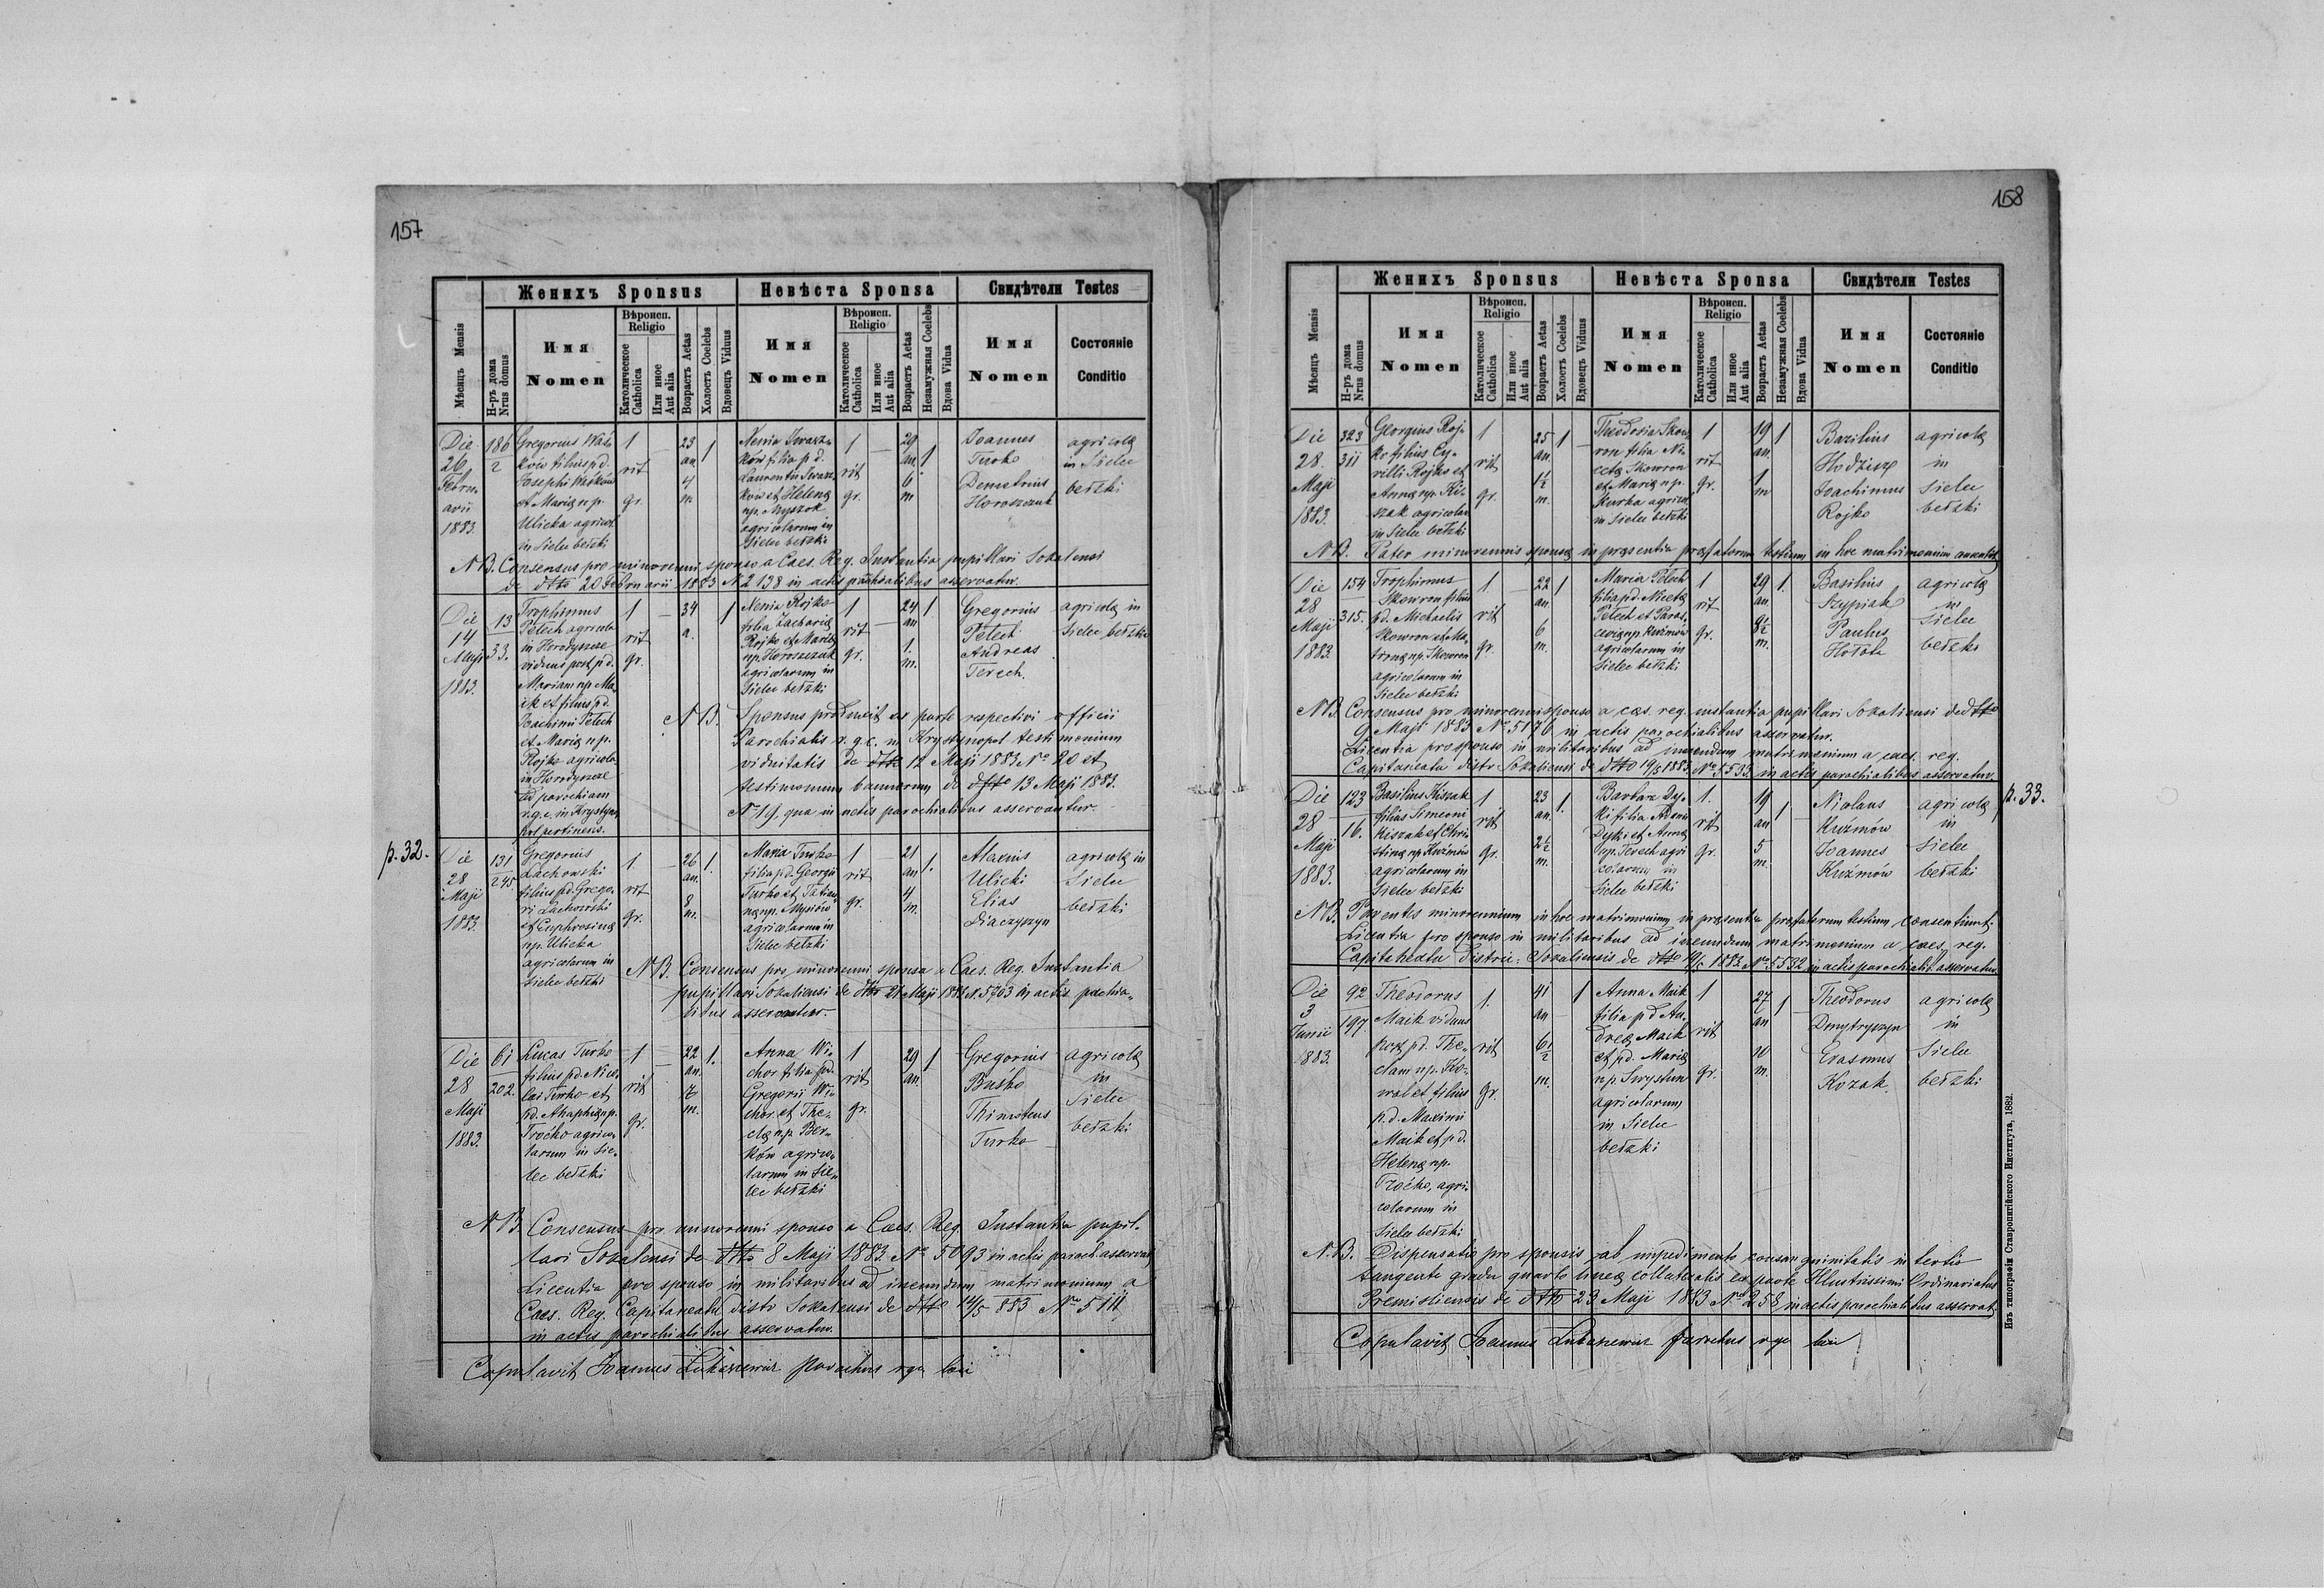 157
Женихъ Sponsus
Невѣста Sponsa
Свидѣтели Testes
Мѣсяцъ Mensis
Н-ръ дома Nrus domus
Имя Nomen
Вѣроисп. Religio
Католическое Catholica
Или иное Aut alia
Возрастъ Aetas
Холостъ Coelebs
Вдовецъ Viduus
Имя Nomen
Вѣроисп. Religio
Католическое Catholica
Или иное Aut alia
Возрастъ Aetas
Незамужная Coelebs
Вдова Vidua
Имя Nomen
Состояніе Conditio
Die 26 Febru- arii 1883.
186 2
Gregorius
filius p.d.
Josephi
et Mariæ n.p.
Ulicka agricol.
in Sielec bełzki
1 rit gr.
23 an 4 m.
1
Xenia Iwasz-
ków filia p.d.
Laurentii Iwasz-
ków et Helenæ
n.p. Myszok
agricolarum in
Sielec bełzki
1 rit gr.
29 an 6 m
1
Joannes
Turko
Demetrius
Horoszczuk
agricolæ
in Sielec
bełzki
NB. Consensus pro minorenni sponso a Caes. Reg. Instantia pupillari Sokalensi
de dtto 20 Februarii 1883 N 2138 in actis parochialibus asservatur.
Die 14 Maji 1883.
13 33.
Trophimus
Petech agricola
in Horodyszcze
viduus post p.d.
Mariam n.p. Ma-
ik et filius p.d.
Joachimi Petech
et Mariæ n.p.
Rojko agricola
in Horodyszcze
ad parochiam
r.g.c. in Krystyno-
pol pertinens.
1 rit gr.
34 a.
1
Xenia Rojko
filia Zachariæ
Rojko et Mariæ
n.p. Horoszczuk
agricolarum in
Sielec bełzki
1 rit gr.
24 an 1. m.
1
Gregorius
Petech
Andreas
Terech.
agricolæ in
Sielec bełzki
NB. Sponsus produxit ex parte respectivi officii
Parochialis r.g.c. in Krystynopol testimonium
viduitatis de dtto 12 Maji 1883 No 20 et
testimonium bannorum de dtto 13 Maji 1883.
N 19, quæ in actis parochialibus asservantur.
p. 32.
Die 28 Maji 1883.
131 245
Gregorius
Lachowski
filius p.d. Grego-
ri Lachowski
et Euphrosinæ
n.p. Ulicka
agricolarum in
Sielec bełzki
1. rit gr.
26 an. 8 m.
1.
Maria Turko
filia p.d. Georgii
Turko et Tatian-
næ n.p. Mysiów
agricolarum in
Sielec bełzki
1 rit gr.
21 an 4 m.
1.
Alexius
Ulicki
Elias
Diaczyszyn
agricolæ in
Sielec
bełzki
NB. Consensus pro minorenni sponsa a Caes. Reg. Instantia
pupillari Sokaliensi de dtto 21 Maji 1883 N. 5763 in actis parochia-
libus asservatur.
Die 28 Maji 1883.
61 202.
Lucas Turko
filius p.d. Nico-
lai Turko et
p.d. Ahaphiæ n.p.
Troćko agrico-
larum in Sie-
lec bełzki
1 rit gr.
22 an. 7 m.
1.
Anna Wi-
chor filia p.d.
Gregorii Wi-
chor et The-
clæ n.p. Ber-
ków agrico-
larum in Sie-
lec bełzki
1 rit gr.
29 an.
1
Gregorius
Buśko
Thimoteus
Turko
agricolæ
in
Sielec
bełzki
NB. Consensus pro minorenni sponso a Caes. Reg. Instantia pupil-
lari Sokalensi de dtto 8 Maji 1883 No 5093 in actis paroch. asservat.
Licentia pro sponso in militaribus ad ineundum matrimonium a
Caes. Reg. Capitaneatu distr Sokalensi de dtto 14/5 883 No 5111
in actis parochialibus asservatur.
Copulavit Joannes Łukasiewicz parochus rgc loci
158
Женихъ Sponsus
Невѣста Sponsa
Свидѣтели Testes
Мѣсяцъ Mensis
Н-ръ дома Nrus domus
Имя Nomen
Вѣроисп. Religio
Католическое Catholica
Или иное Aut alia
Возрастъ Aetas
Холостъ Coelebs
Вдовецъ Viduus
Имя Nomen
Вѣроисп. Religio
Католическое Catholica
Или иное Aut alia
Возрастъ Aetas
Незамужная Coelebs
Вдова Vidua
Имя Nomen
Состояніе Conditio
Die 28. Maji 1883.
323 311
Georgius Roj-
ko filius Cy-
rilli Rojko et
Annæ n.p. Ki-
szak agricolar.
in Sielec bełzki
1 rit gr.
25 an. 1½ m.
1
Theodosia Skow-
ron filia Ni-
cetæ Skowron
et Mariæ n.p.
Kurka agricol.
in Sielec bełzki
1 rit gr.
19 an. 1 m
1
Bazilius
Hodzisz
Joachimus
Rojko
agricolæ
in
Sielec
bełzki
NB. Pater minorennis sponsæ in præsentia præfatorum testium in hoc matrimonium consentit
Die 28 Maji 1883.
154 315.
Trophimus
Skowron filius
p.d. Michaelis
Skowron et Ma-
tronæ n.p. Skowron
agricolarum in
Sielec bełzki
1 rit gr.
22 an. 6 m.
1
Maria Petech
filia p.d. Nicetæ
Petech et Paras-
ceviæ n.p. Kuźmów
agricolarum in
Sielec bełzki
1 rit gr.
29 an. 8½ m.
1.
Basilius
Szypiak
Paulus
Hołoh
agricolæ
in
Sielec
bełzki
NB. Consensus pro minorenni sponso a cæs. reg. instantia pupillari Sokaliensi de dtto
9 Maji 1883 No 5176 in actis parochialibus asservatur.
Licentia pro sponso in militaribus ad ineundum matrimonium a caes. reg.
Capitaneatu distr Sokaliensi de dtto 19/5 1883 No 5533 in actis parochialibus asservatur.
p. 33.
Die 28 Maji 1883.
123 16.
Basilius Kiszak
filius Simeoni
Kiszak et Chri-
stinæ n.p. Kuźmów
agricolarum in
Sielec bełzki
1 rit gr.
23 an. 2½ m.
1.
Barbara Dy-
ki filia Adami
Dyki et Annæ
n.p. Terech agri
colarum in
Sielec bełzki
1. rit gr.
19 an 5 m.
1
Nicolaus
Kuźmów
Joannes
Kuźmów
agricolæ
in
Sielec
bełzki
NB. Parentes minorennium in hoc matrimonium in præsentia præfatorum testium consentiunt;
Licentia pro sponso in militaribus ad ineundum matrimonium a caes. reg.
Capitaneatu Distric: Sokaliensis de dtto 19/5 1883 No 5532 in actis parochialib. asservatur.
Die 3 Junii 1883.
92 197
Theodorus
Maik viduus
post p.d. The-
clam n.p. Ko-
wal et filius
p.d. Maximi
Maik et p.d.
Helenæ n.p.
Troćko, agri-
colarum in
Sielec bełzki
1. rit gr.
41 an 6½ m.
1
Anna Maik
filia p.d. An-
dreæ Maik
et p.d. Mariæ
n.p. Swystun
agricolarum
in Sielec
bełzki
1 rit gr.
27 an 10 m.
1
Theodorus
Dmytryszyn
Erasmus
Kozak
agricolæ
in
Sielec
bełzki
N.B. Dispensatio pro sponsis ab impedimento consanguinitatis in tertio
tangente gradu quarto lineæ collateralis ex parte Illustrissimi Ordinariatus
Premisliensis de dtto 23 Maji 1883 No 258 in actis parochialibus asservat.
Copulavit Joannes Łukasiewicz parochus rgc loci
Изъ типографіи Ставропигійского Института, 1882.